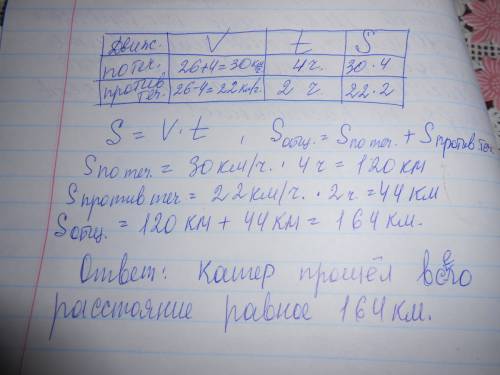 Движ. V t S
по теч. 26+4=30км/ч 4ч. 30·4
против теч. 26-4=22км/ч. 2 ч. 22·2
S = V·t , Sобщ.=Sпо теч.+Sпротив теч.
Sпо теч.= 30км/ч.·4ч=120км
Sпротив теч=22км/ч.·2ч.=44км
Sобщ.=120км+44км=164км.
Ответ: катер прошёл всего
расстояние равное 164км.